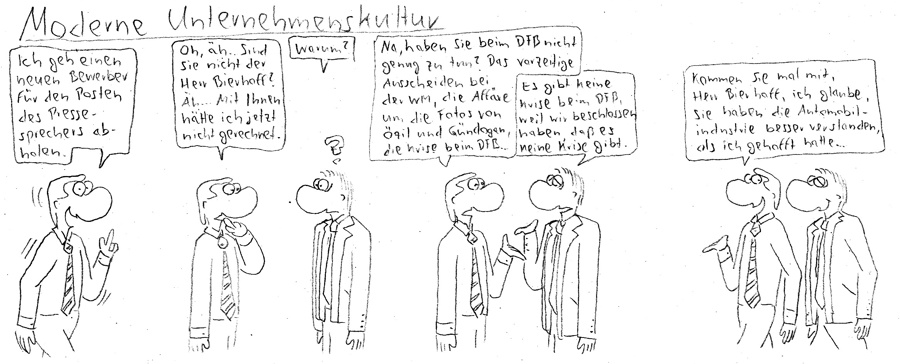 Moderne Unternehmenskultur
Ich geh einen
neuen Bewerber
für den Posten
des Presse-
sprechers ab-
holen.
Oh, äh.. Sind
sie nicht der
Herr Bierhoff?
Äh... Mit Ihnen
hätte ich jetzt
nicht gerechnet.
Warum?
Na, haben Sie beim DFB nicht
genug zu tun? Das vorzeitige
Ausscheiden bei
der WM, die Affäre
um die Fotos von
Ögil und Gündogan,
die Krise beim DFB...
Es gibt keine
Krise beim DFB,
weil wir beschlossen
haben, daß es
keine Krise gibt.
Kommen Sie mal mit,
Herr Bierhoff, ich glaube,
Sie haben die Automobil-
industrie besser verstanden,
als ich gehofft hatte...